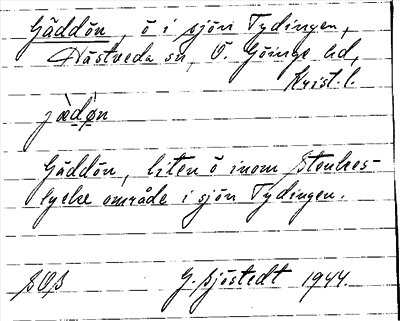 Gäddön, ö i sjön Tydingen,
Hästveda sn, V. Göinge hd,
Krist. l.
jæ̀dǿn
Gäddön, liten ö inom Stenkes-
tycke område i sjön Tydingen.
SOS
G. Sjöstedt 1944.